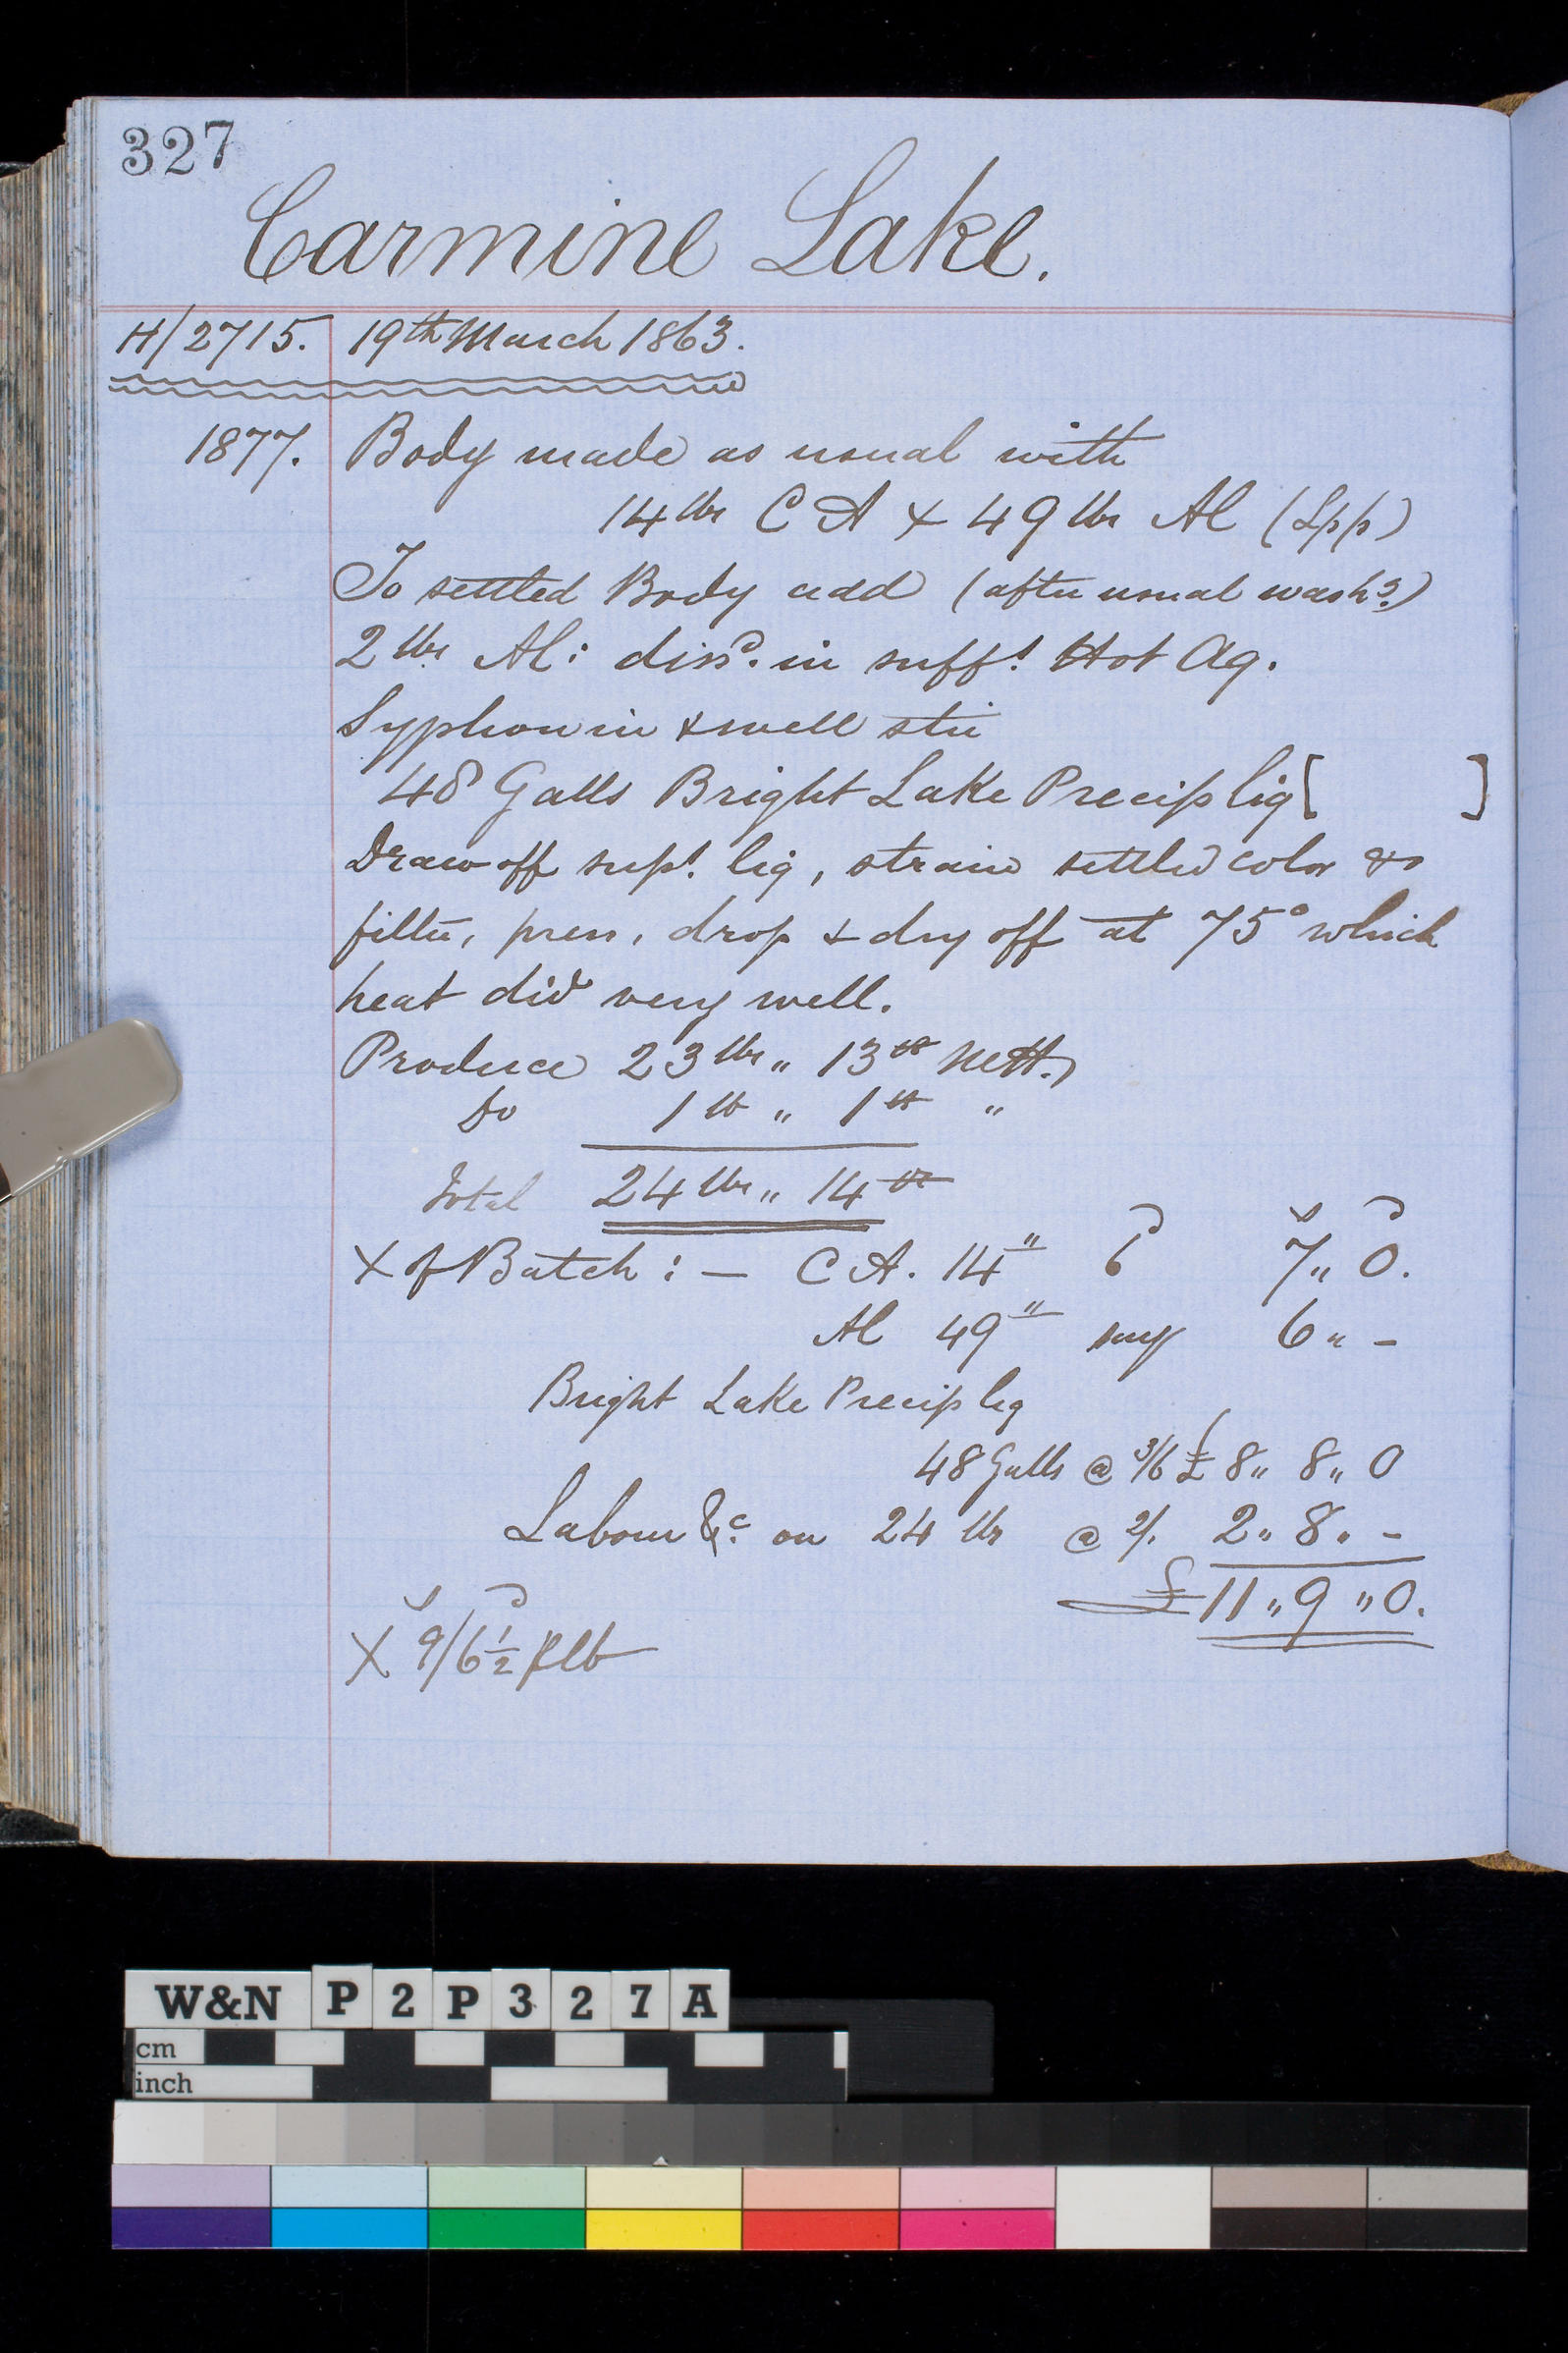 327
Carmine Lake.
H/2715. 19th March 1863.
1877. Body made as usual with
14 lbs C A & 49 lbs Al (Spp)
To settled Body add (after usual washg)
2 lbs Al: dissd. in sufft Hot Aq.
Syphon in & well stir
48 Galls Bright Lake Precip liq [ ]
Draw off supt. liq, strain settled color &
filter, press, drop & dry off at 75° which
heat did very well.
Produce 23 lbs „ 13 oz Nett.
Do 1 lb „ 1 oz „
Total 24 lbs „ 14 oz
X of Batch: — C A. 14 " 6d 7s „ 0d.
Al 49 " say 6 „ -
Bright Lake Precip liq
48 Galls @ 3/6 £ 8 „ 8 „ 0
Labour &c. on 24 lbs @ 2/. 2 „ 8 „ -
£ 11 „ 9 „ 0.
X 9s/6½d p lb
W&N P2P327A
cm
inch